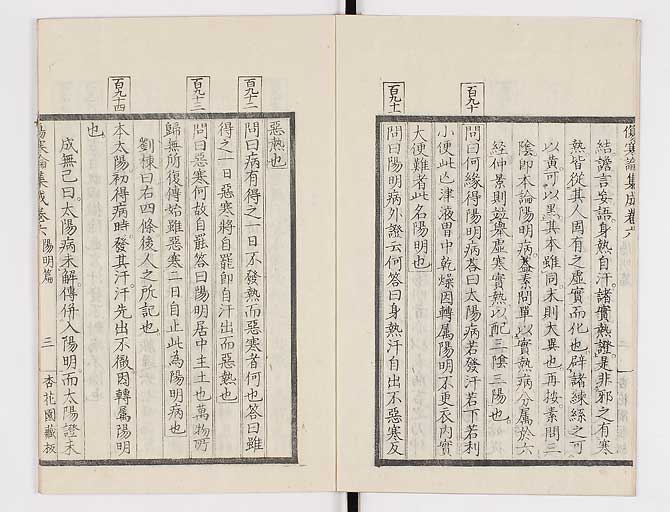 傷寒論集成卷六
結譫言妄語身熱自汗諸實熱證是非邪之有寒
熱皆從其人固有之虛實而化也辟諸練絲之可
以黃可以黑其本雖同末則大異也再按素問三
陰即本論陽明病蓋素問單以實熱病分屬於六
經仲景則竝舉虛寒實熱以配三陰三陽也
百九十
問曰何緣得陽明病答曰太陽病若發汗若下若利
小便此亡津液胃中乾燥因轉屬陽明不更衣內實
大便難者此名陽明也
百九十一
問曰陽明病外證云何答曰身熱汗自出不惡寒反
惡熱也
百九十二
問曰病有得之一日不發熱而惡寒者何也答曰雖
得之一日惡寒將自罷即自汗出而惡熱也
百九十三
問曰惡寒何故自罷答曰陽明居中主土也萬物所
歸無所復傳始雖惡寒二日自止此為陽明病也
劉棟曰右四條後人之所記也
百九十四
本太陽初得病時發其汗汗先出不徹因轉屬陽明
也
成無己曰太陽病未解傳併入陽明而太陽證未
傷寒論集成卷六 陽明篇 三 杏花園藏板